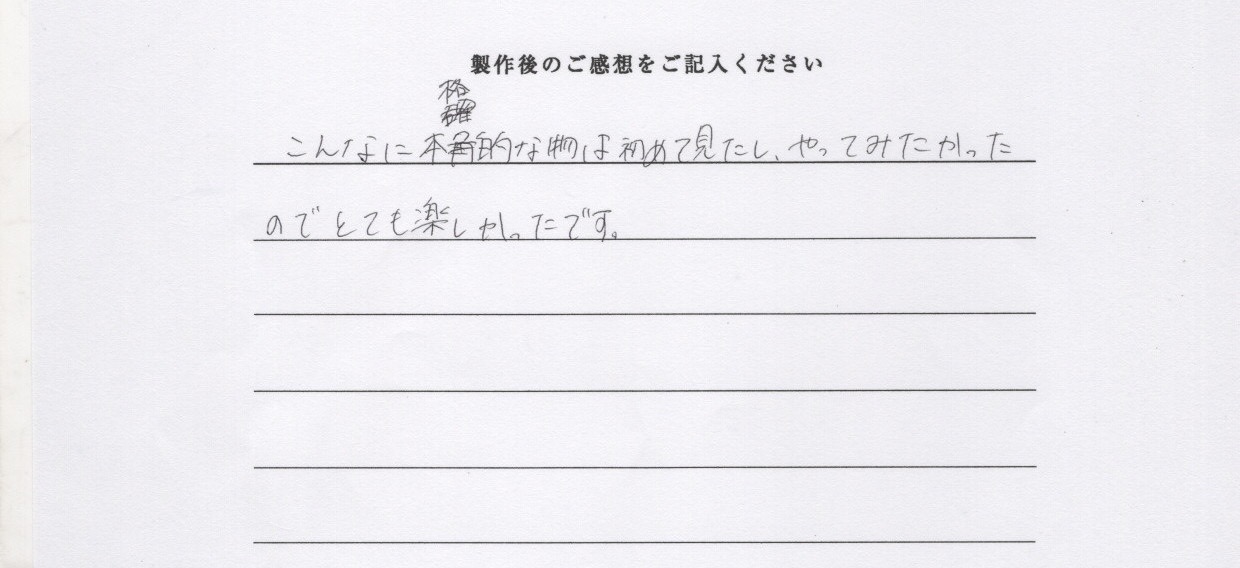 製作後のご感想をご記入ください
こんなに本格的な物は初めて見たし、やってみたかった
のでとても楽しかったです。